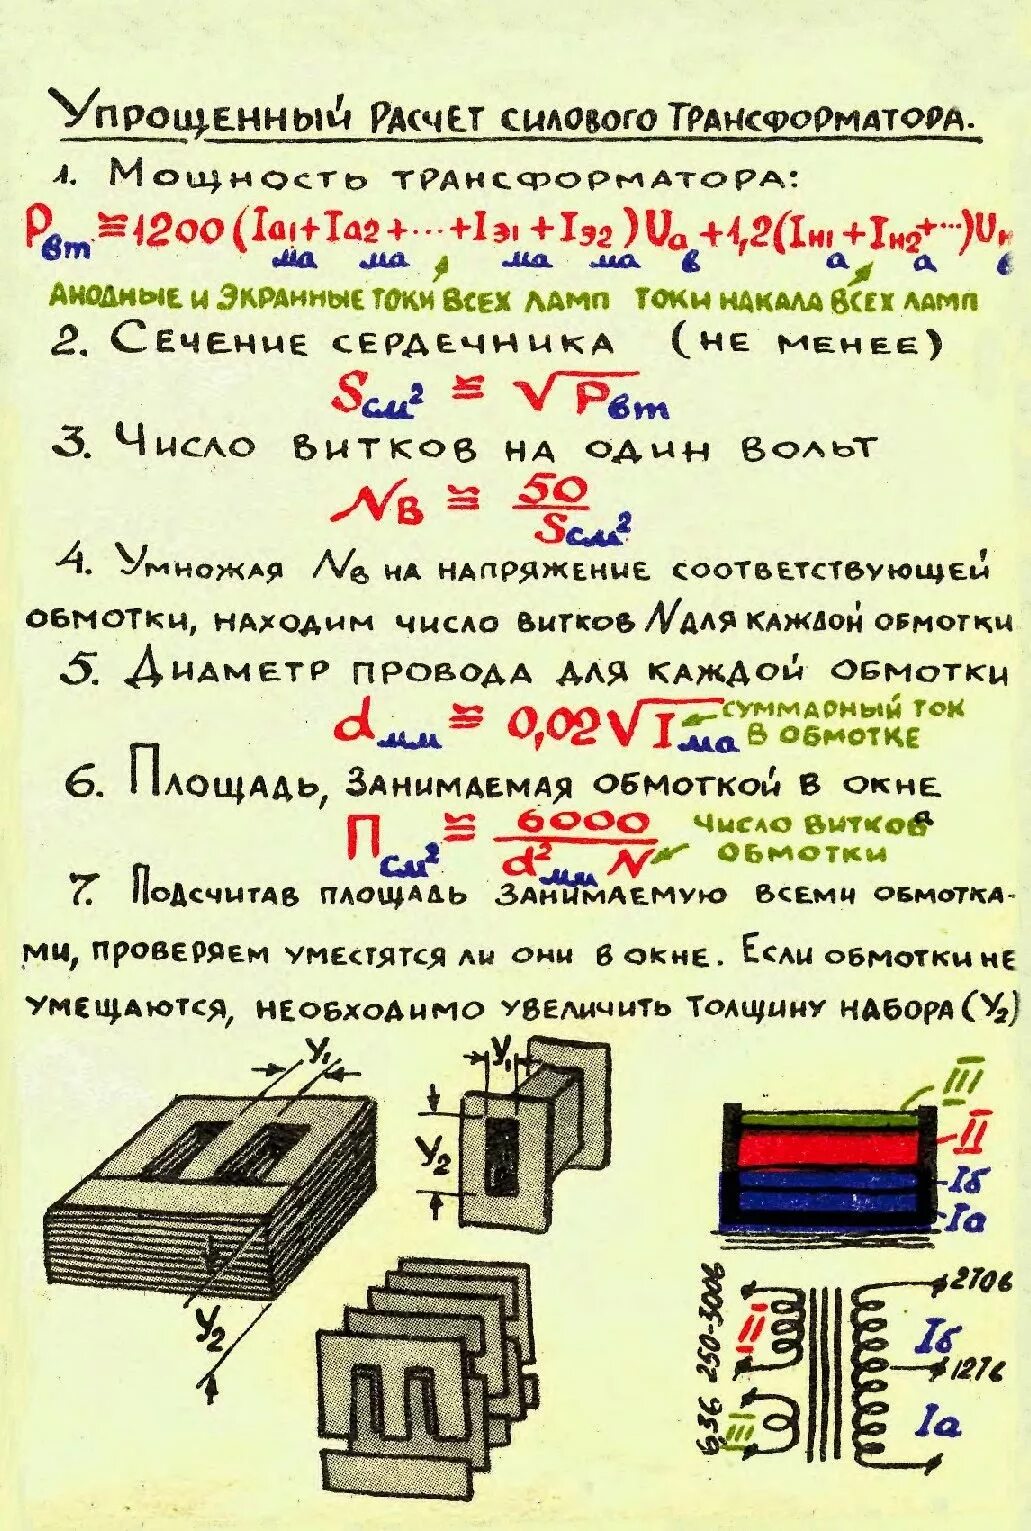 Упрощенный расчет силового трансформатора.
1. Мощность трансформатора:
Pвт ≅ 1200 (Iа1 + Iа2 + ... + Iэ1 + Iэ2) Uа + 1,2 (Iн1 + Iн2 + ...) Uн
ма ма ма ма в а а в
анодные и экранные токи всех ламп токи накала всех ламп
2. Сечение сердечника (не менее)
Sсм² ≅ √Pвт
3. Число витков на один вольт
Nв ≅ 50/Sсм²
4. Умножая Nв на напряжение соответствующей
обмотки, находим число витков N для каждой обмотки
5. Диаметр провода для каждой обмотки
dмм ≅ 0,02 √Iма суммарный ток
в обмотке
6. Площадь, занимаемая обмоткой в окне
Псм² ≅ 6000/d²мм N число витков
обмотки
7. Подсчитав площадь занимаемую всеми обмотка-
ми, проверяем уместятся ли они в окне. Если обмотки не
умещаются, необходимо увеличить толщину набора (У₂)
У₁ У₁ III
II
У₂ Iб
Iа
У₂
250-300в II 270в
Iб
127в
6,3в III Iа